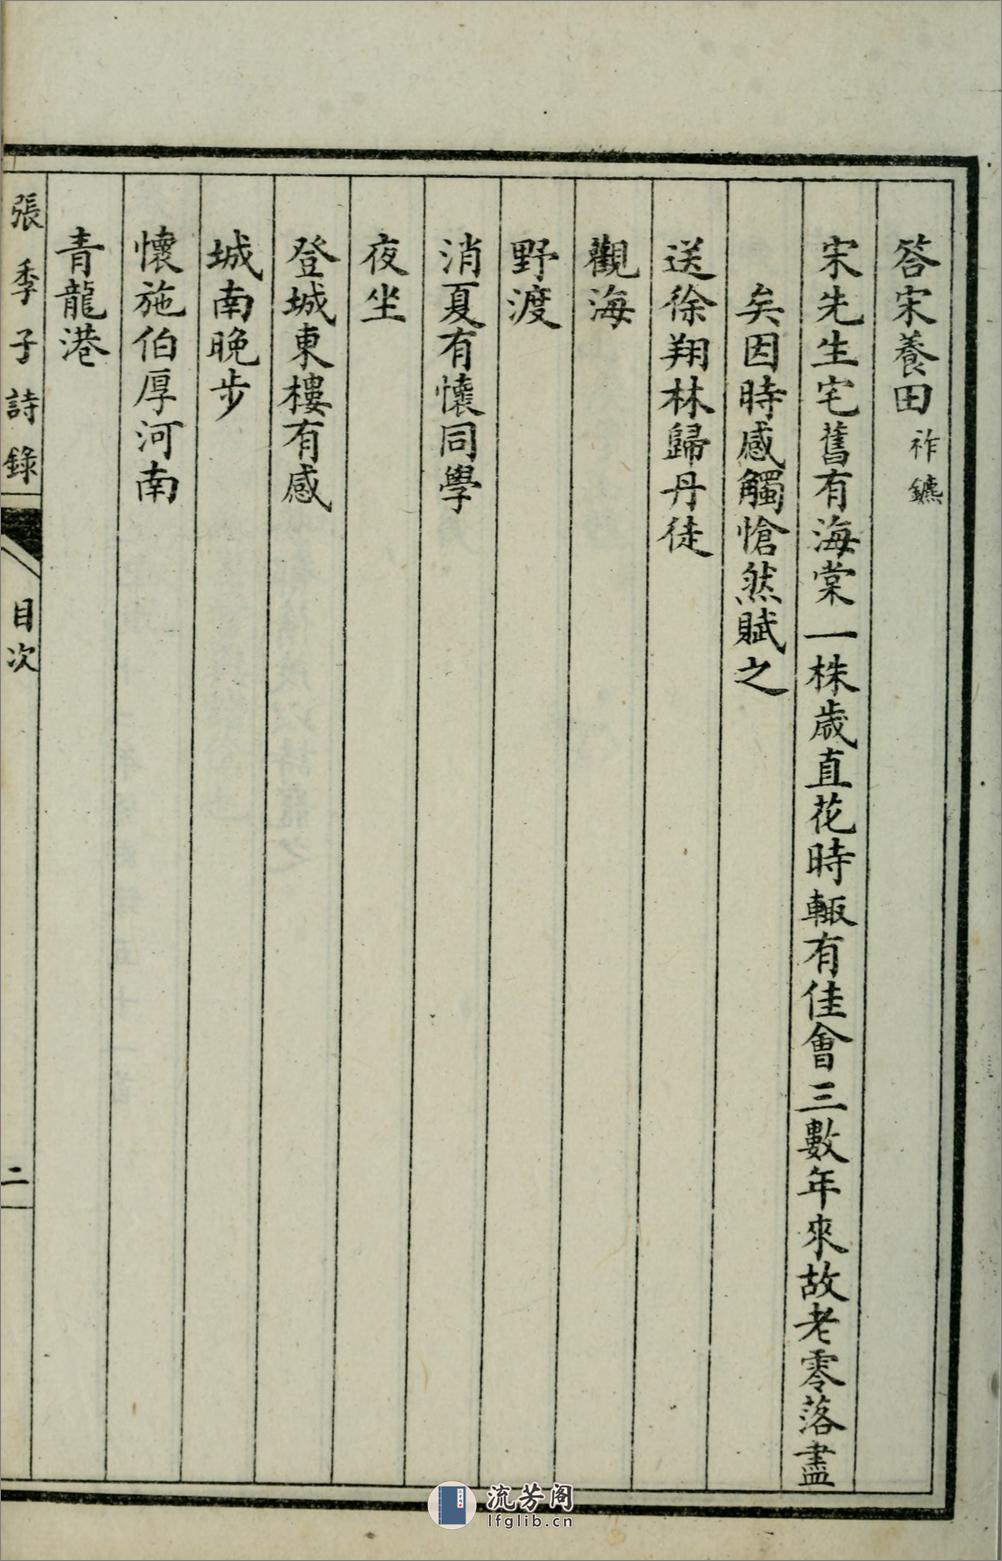 答宋養田祚鑣
宋先生宅舊有海棠一株歲直花時輒有佳會三數年來故老零落盡
矣因時感觸愴然賦之
送徐翔林歸丹徒
觀海
野渡
消夏有懷同學
夜坐
登城東樓有感
城南晚步
懷施伯厚河南
青龍港
張季子詩錄
目次
二
流芳阁
lfglib.cn